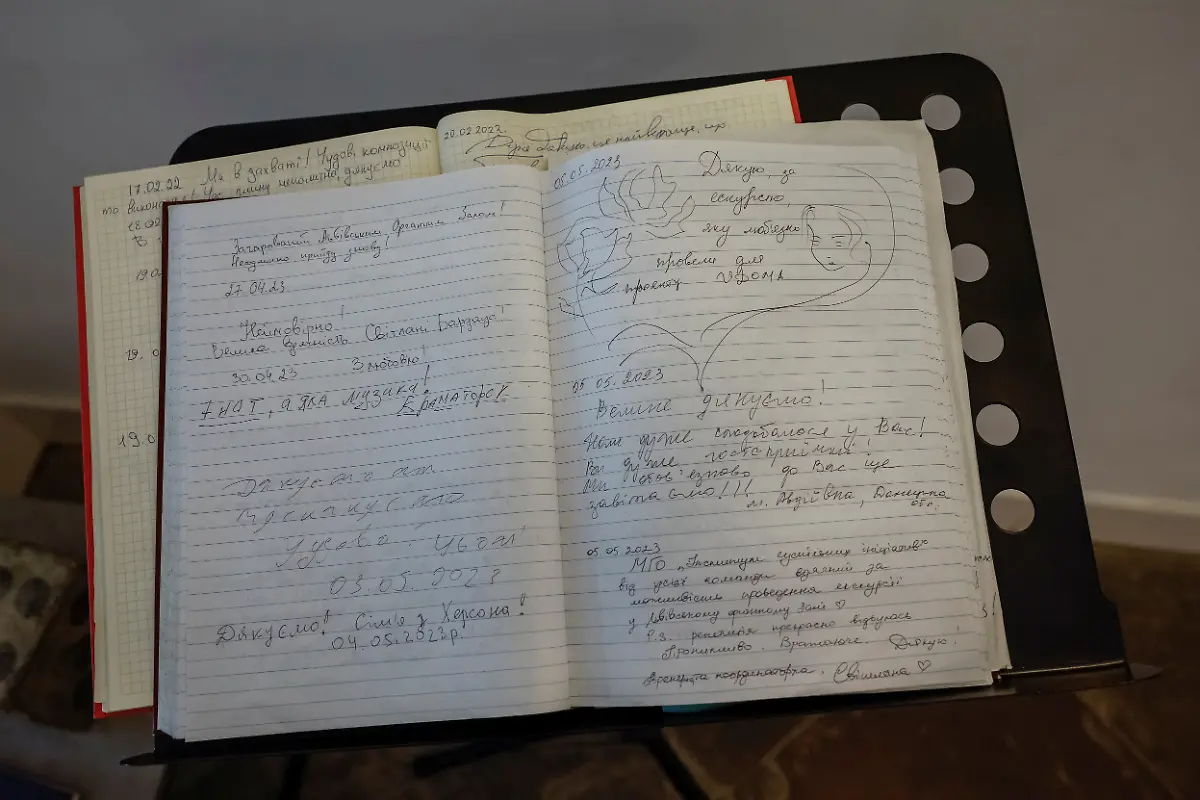 17.02.22 Ми в захваті! Чудові композиції
та
дякуємо
18.02
В
19.0
19.0
19.0
20.02.2022.
Зачарований Львівським Органним Залом!
Неодмінно прийду знову!
27.04.23
Неймовірно!
Велика вдячність Світлані
30.04.23 З любов'ю!
7 НОТ, а яка музика! Краматорск
Дякуємо
Чудово!
03.05.2023
Дякуємо! Сім'я з Херсона!
04.05.2023р.
05.05.2023
Дякую за
екскурсію,
яку люб'язно
провели для
проекту VДОМА
05.05.2023
Велике дякуємо!
Нам дуже сподобалося у Вас!
Ви дуже гостприїмні!
Ми обов'езково до Вас ще
завітаємо!!!
м. Авдіївка, Донецька
обл.
05.05.2023
МГО „Інститут суспільних ініціатив"
від усієї команди вдячний за
можливість проведення екскурсії
у Львівському органному залі ♡
P.S. репетиція прекрасно відбулась
Проникливо. Вражаюче. Дякую!
координаторка, Світлана ♡